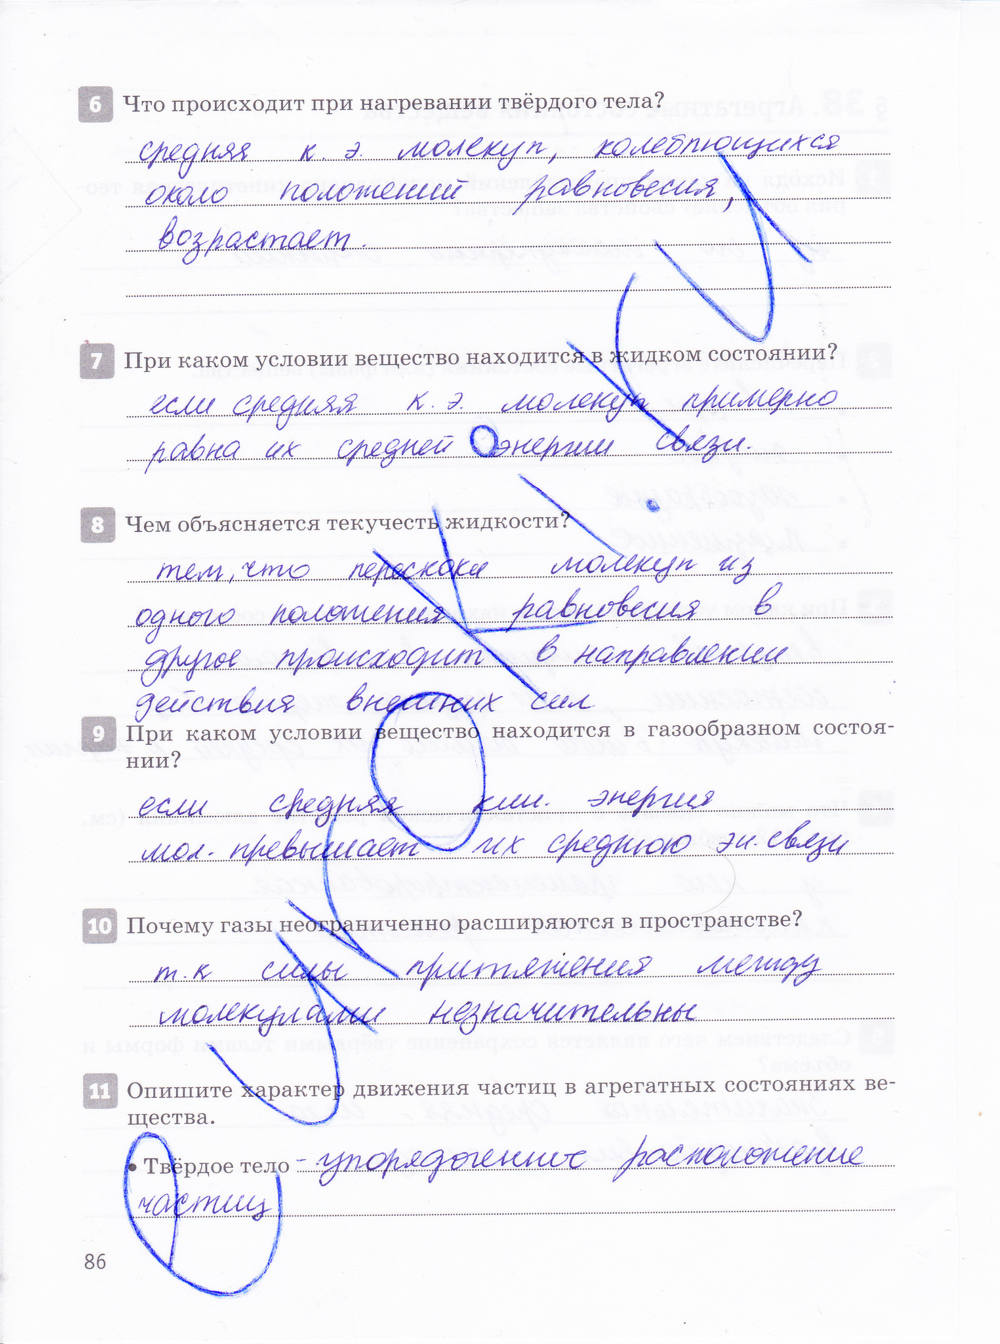 6 Что происходит при нагревании твёрдого тела?
средняя к. э. молекул, колеблющихся
около положений равновесия,
возрастает.
7 При каком условии вещество находится в жидком состоянии?
если средняя к. э. молекул примерно
равна их средней энергии связи.
8 Чем объясняется текучесть жидкости?
тем, что перескоки молекул из
одного положения равновесия в
другое происходит в направлении
действия внешних сил
9 При каком условии вещество находится в газообразном состоя-
нии?
если средняя кин. энергия
мол. превышает их среднюю эн. связи
10 Почему газы неограниченно расширяются в пространстве?
т.к силы притяжения между
молекулами незначительны
11 Опишите характер движения частиц в агрегатных состояниях ве-
щества.
• Твёрдое тело - упорядоченное расположение
частиц
86